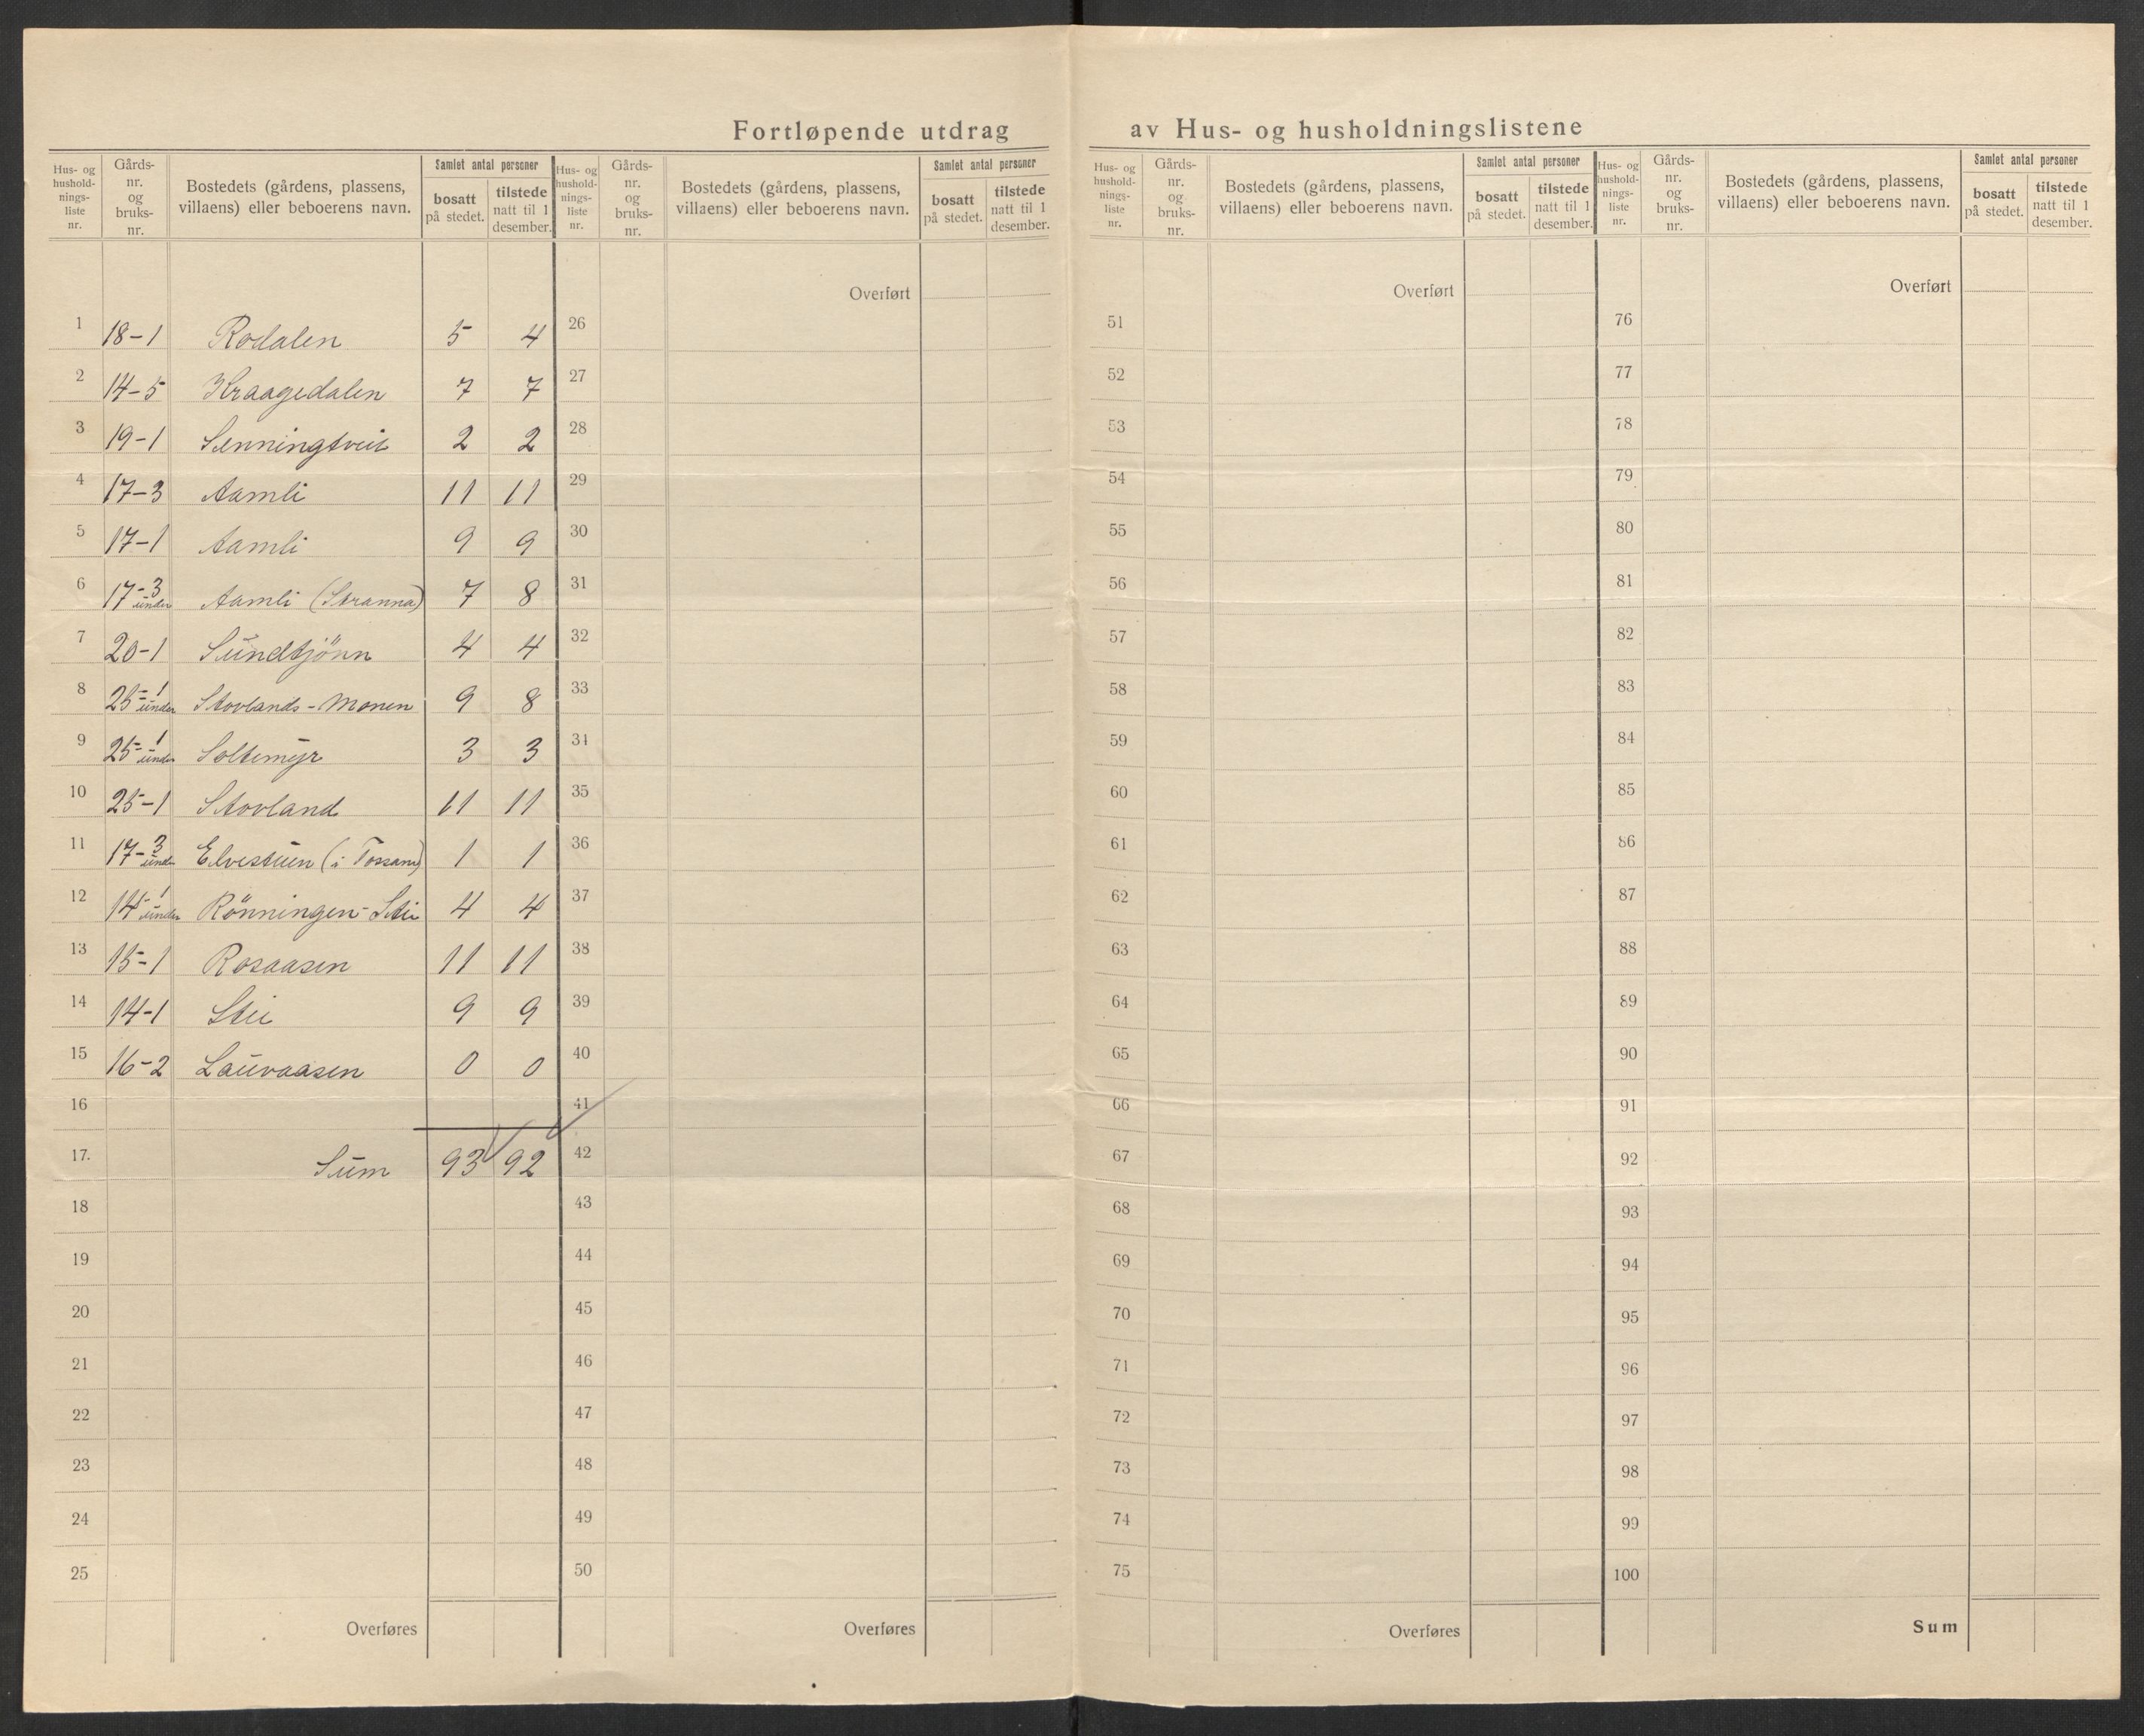 Fortløpende utdrag av Hus- og husholdningslistene
Hus- og hushold- nings- liste nr. Gårds- nr. og bruks- nr. Bostedets (gårdens, plassens, villaens) eller beboerens navn. Samlet antal personer bosatt på stedet. tilstede natt til 1 desember.
Hus- og hushold- nings- liste nr. Gårds- nr. og bruks- nr. Bostedets (gårdens, plassens, villaens) eller beboerens navn. Samlet antal personer bosatt på stedet. tilstede natt til 1 desember.
Hus- og hushold- nings- liste nr. Gårds- nr. og bruks- nr. Bostedets (gårdens, plassens, villaens) eller beboerens navn. Samlet antal personer bosatt på stedet. tilstede natt til 1 desember.
Hus- og hushold- nings- liste nr. Gårds- nr. og bruks- nr. Bostedets (gårdens, plassens, villaens) eller beboerens navn. Samlet antal personer bosatt på stedet. tilstede natt til 1 desember.
Overført Overført Overført
1 18-1 Rodalen 5 4 26 51 76
2 14-5 Kraagedalen 7 7 27 52 77
3 19-1 Senningtveit 2 2 28 53 78
4 17-3 Aamli 11 11 29 54 79
5 17-1 Aamli 9 9 30 55 80
6 17-3 under Aamli (Stranna) 7 8 31 56 81
7 20-1 Sundtjönn 4 4 32 57 82
8 25-1 under Stovlands-Monen 9 8 33 58 83
9 25-1 under Soltemyr 3 3 34 59 84
10 25-1 Stovland 11 11 35 60 85
11 17-3 under Elvestuen (i 1 1 36 61 86
12 14-1 under Rönningen-Stie 4 4 37 62 87
13 15-1 Rosaasen 11 11 38 63 88
14 14-1 Stie 9 9 39 64 89
15 16-2 Lauvaasen 0 0 40 65 90
16 41 66 91
17. Sum 93 92 42 67 92
18 43 68 93
19 44 69 94
20 45 70 95
21 46 71 96
22 47 72 97
23 48 73 98
24 49 74 99
25 50 75 100
Overføres Overføres Overføres Sum